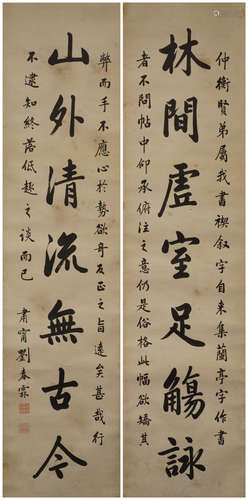 林間虛室足觴詠
仲衡賢弟属我書禊叙字自来集蘭亭字作書
者不問帖中命承俯注之意仍是俗格此幅欲矯其
山外清流無古今
弊而手不應心於勢欲奇反正之旨遠矣甚哉行
不逮知終落低趣之談而已
肅甯劉春霖